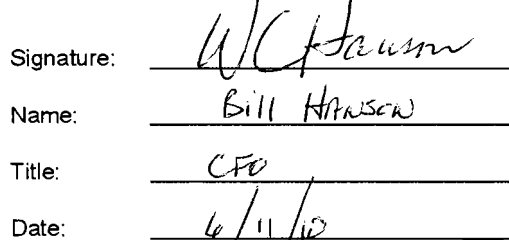 Signature: WCHanson
Name: Bill HANSON
Title: CFO
Date: 6/11/10